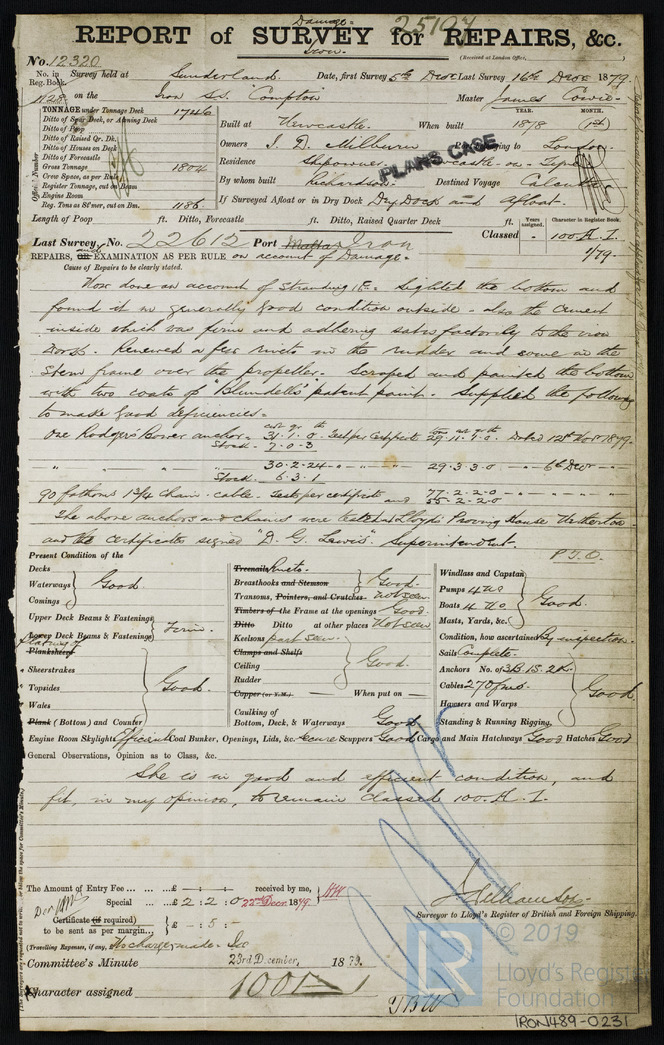 Damage
25107
REPORT of SURVEY for REPAIRS, &c.
Iron.
(Received at London Office,
No. 12320
No. in Reg. Book.
Survey held at Sunderland. Date, first Survey 5th Decr Last Survey 16th Decr 1879.
1128 on the Iron S.S. "Compton" Master James Cowie
TONNAGE under Tonnage Deck 1746
Ditto of Spar Deck, or Awning Deck
Ditto of Poop
Ditto of Raised Qr. Dk.
Ditto of Houses on Deck
Ditto of Forecastle
Gross Tonnage 1804
Crew Space, as per Rule
Register Tonnage, cut on Beam
Engine Room
Reg. Tons as St'mer, cut on Bm. 1186
Official Number
YEAR. MONTH.
Built at Newcastle. When built 1878 (1st)
Owners J. D. Milburn Port belonging to London
Residence Shipowner Newcastle-on-Tyne
PLANS CASE
By whom built Richardson Destined Voyage Calcutta
If Surveyed Afloat or in Dry Dock Dry Dock and afloat.
Length of Poop ft. Ditto, Forecastle ft. Ditto, Raised Quarter Deck ft.
Years assigned. Character in Register Book.
Last Survey No. 22612 Port Iron Classed - 100.A.1.
1/79.
REPAIRS, or EXAMINATION AS PER RULE on account of Damage.
Cause of Repairs to be clearly stated.
Now done on account of stranding &c. Sighted the bottom and
found it in generally good condition outside - also the cement
inside which was firm and adhering satisfactorily to the iron
work. Renewed a few rivets in the rudder and some in the
stern frame over the propeller. Scraped and painted the bottom
with two coats of "Blundell's" patent paint. Supplied the following
to make good deficiencies.
One Rodgers Bower anchor - 31.1.0 Test per Certificate 29.11.1.0 Dated 12th Novr 1879.
Stock 7.0.3
" " " 30.2.24 - " - " - 29.3.3.0 - " - 6th Decr - " -
Stock 6.3.1
90 fathoms 1 3/4 chain cable. Test per certificate and 77.2.2.0 - " - " - " -
55.2.2.0
The above anchors and chains were tested at Lloyd's Proving House Netherton
and the certificates signed "D. G. Lewis" Superintendent.
P.T.O.
Present Condition of the
Decks
Waterways
Comings
Good
Upper Deck Beams & Fastenings
Lower Deck Beams & Fastenings
Firm.
Planksheers
Sheerstrakes
Topsides
Wales
Plank (Bottom) and Counter
Good.
Treenails Rivets.
Breasthooks and Stemson
Good
Transoms, Pointers, and Crutches. not seen
Timbers of the Frame at the openings Good.
Ditto Ditto at other places Not seen
Keelsons part seen
Clamps and Shelfs
Ceiling
Rudder
Good.
Copper (or Y.M.) When put on
Caulking of
Bottom, Deck, & Waterways Good
Windlass and Capstan
Pumps 4 No
Boats 4 No
Masts, Yards, &c.
Good.
Condition, how ascertained By inspection.
Sails Complete.
Anchors No. of 3B.1S.2K.
Cables 270 fms.
Hawsers and Warps
Standing & Running Rigging.
Good
Engine Room Skylights Efficient Coal Bunker, Openings, Lids, &c. secure Scuppers Good Cargo and Main Hatchways Good Hatches Good
General Observations, Opinion as to Class, &c.
She is in good and efficient condition, and
fit, in my opinion, to remain classed 100.A.1.
The Amount of Entry Fee ... £ - : - : received by me,
Special ... £ 2 : 2 : 0 22nd Decr 1879.
Certificate (if required) to be sent as per margin... £ - : 5 : -
(Travelling Expenses, if any, No charge made
Surveyor to Lloyd's Register of British and Foreign Shipping.
Committee's Minute 23rd December, 1879.
Character assigned 100 A 1
© 2019
LR
Lloyd's Register
Foundation
IRON489-0231